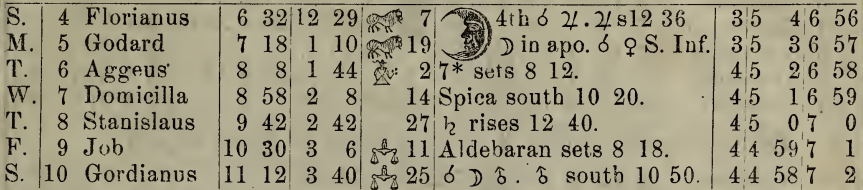 S. 4 Florianus 6 32 12 29 7 4th ☌ ♃. ♃ s12 36 3 5 4 6 56
M. 5 Godard 7 18 1 10 19 ☽ in apo. ☌ ♀ S. Inf. 3 5 3 6 57
T. 6 Aggeus 8 8 1 44 2 7* sets 8 12. 4 5 2 6 58
W. 7 Domicilla 8 58 2 8 14 Spica south 10 20. 4 5 1 6 59
T. 8 Stanislaus 9 42 2 42 27 ♄ rises 12 40. 4 5 0 7 0
F. 9 Job 10 30 3 6 ♎ 11 Aldebaran sets 8 18. 4 4 59 7 1
S. 10 Gordianus 11 12 3 40 ♎ 25 ☌ ☽ ♉. ♉ south 10 50. 4 4 58 7 2